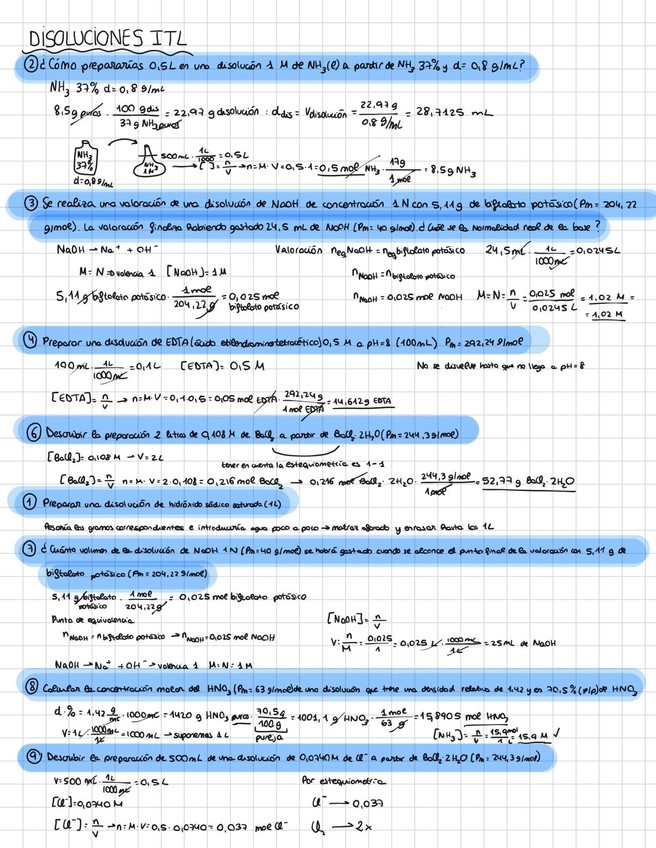 DISOLUCIONES ITL
② ¿Cómo prepararías 0,5L en una disolución 1 M de NH₃(l) a partir de NH₃ 37% y d= 0,8 g/mL?
NH₃ 37% d= 0,8 g/mL
8,5g puros · 100 g dis / 37g NH₃ puros = 22,97 g disolución : d dis = V disolución = 22,97 g / 0,8 g/mL = 28,7125 mL
NH₃ 37% d=0,8 g/mL NH₃ 1M 500mL · 1L/1000 = 0,5L
[ ] = n/V → n=M·V=0,5·1=0,5 mol NH₃ · 17g / 1 mol = 8,5g NH₃
③ Se realiza una valoración de una disolución de NaOH de concentración 1 N con 5,11g de biftalato potásico (Pm = 204,22
g/mol). La valoración finaliza habiendo gastado 24,5 mL de NaOH (Pm= 40 g/mol). ¿Cuál es la normalidad real de la base?
NaOH → Na⁺ + OH⁻ Valoración n eq NaOH = n eq biftalato potásico 24,5mL · 1L / 1000mL = 0,0245L
M = N ⇒ valencia 1 [NaOH] = 1M n NaOH = n biftalato potásico
5,11 g biftalato potásico · 1 mol / 204,22 g = 0,025 mol biftalato potásico n NaOH = 0,025 mol NaOH M=N= n/V = 0,025 mol / 0,0245 L = 1,02 M =
= 1,02 M
④ Preparar una disolución de EDTA (ácido etilendiaminotetracético) 0,5 M a pH=8 (100mL) Pm = 292,24 g/mol
100 mL · 1L / 1000mL = 0,1L [EDTA] = 0,5 M No se disuelve hasta que no llega a pH=8
[EDTA] = n/V → n=M·V=0,1·0,5=0,05 mol EDTA · 292,24g / 1 mol EDTA = 14,612g EDTA
⑥ Describir la preparación 2 litros de 0,108 M de BaCl₂ a partir de BaCl₂ 2H₂O (Pm= 244,3 g/mol)
[BaCl₂] = 0,108 M → V=2L
tener en cuenta la estequiometría es 1-1
[BaCl₂] = n/V n=M·V=2·0,108=0,216 mol BaCl₂ → 0,216 mol BaCl₂ · 2H₂O · 244,3 g/mol / 1 mol = 52,77 g BaCl₂ · 2H₂O
① Preparar una disolución de hidróxido sódico saturada (1L)
Pesaría los gramos correspondientes e introduciría agua poco a poco → matraz aforado y enrasar hasta los 1L
⑦ ¿Cuánto volumen de la disolución de NaOH 1N (Pm=40 g/mol) se habrá gastado cuando se alcance el punto final de la valoración con 5,11 g de
biftalato potásico (Pm = 204,22 g/mol)
5,11 g biftalato potásico · 1 mol / 204,22g = 0,025 mol biftalato potásico
Punto de equivalencia [NaOH] = n/V
n NaOH = n biftalato potásico → n NaOH = 0,025 mol NaOH V= n/M = 0,025/1 = 0,025 L · 1000mL / 1L = 25mL de NaOH
NaOH → Na⁺ + OH⁻ → valencia 1 M=N=1M
⑧ Calcular la concentración molar del HNO₃ (Pm= 63 g/mol) de una disolución que tiene una densidad relativa de 1,42 y en 70,5% (p/p) de HNO₃
d·% = 1,42 g/mL · 1000mL = 1420 g HNO₃ puros · 70,5g / 100g = 1001,1 g HNO₃ · 1 mol / 63 g = 15,8905 mol HNO₃
pureja
V=1L · 1000mL / 1L = 1000 mL → suponemos 1L [NH₃] = n/V = 15,9 mol / 1 L = 15,9 M ✓
⑨ Describir la preparación de 500mL de una disolución de 0,0740M de Cl⁻ a partir de BaCl₂ 2H₂O (Pm = 244,3 g/mol)
V=500 mL · 1L / 1000mL = 0,5L Por estequiometría
[Cl⁻] = 0,0740 M Cl⁻ → 0,037
[Cl⁻] = n/V → n=M·V=0,5·0,0740=0,037 mol Cl⁻ Cl₂ → 2x